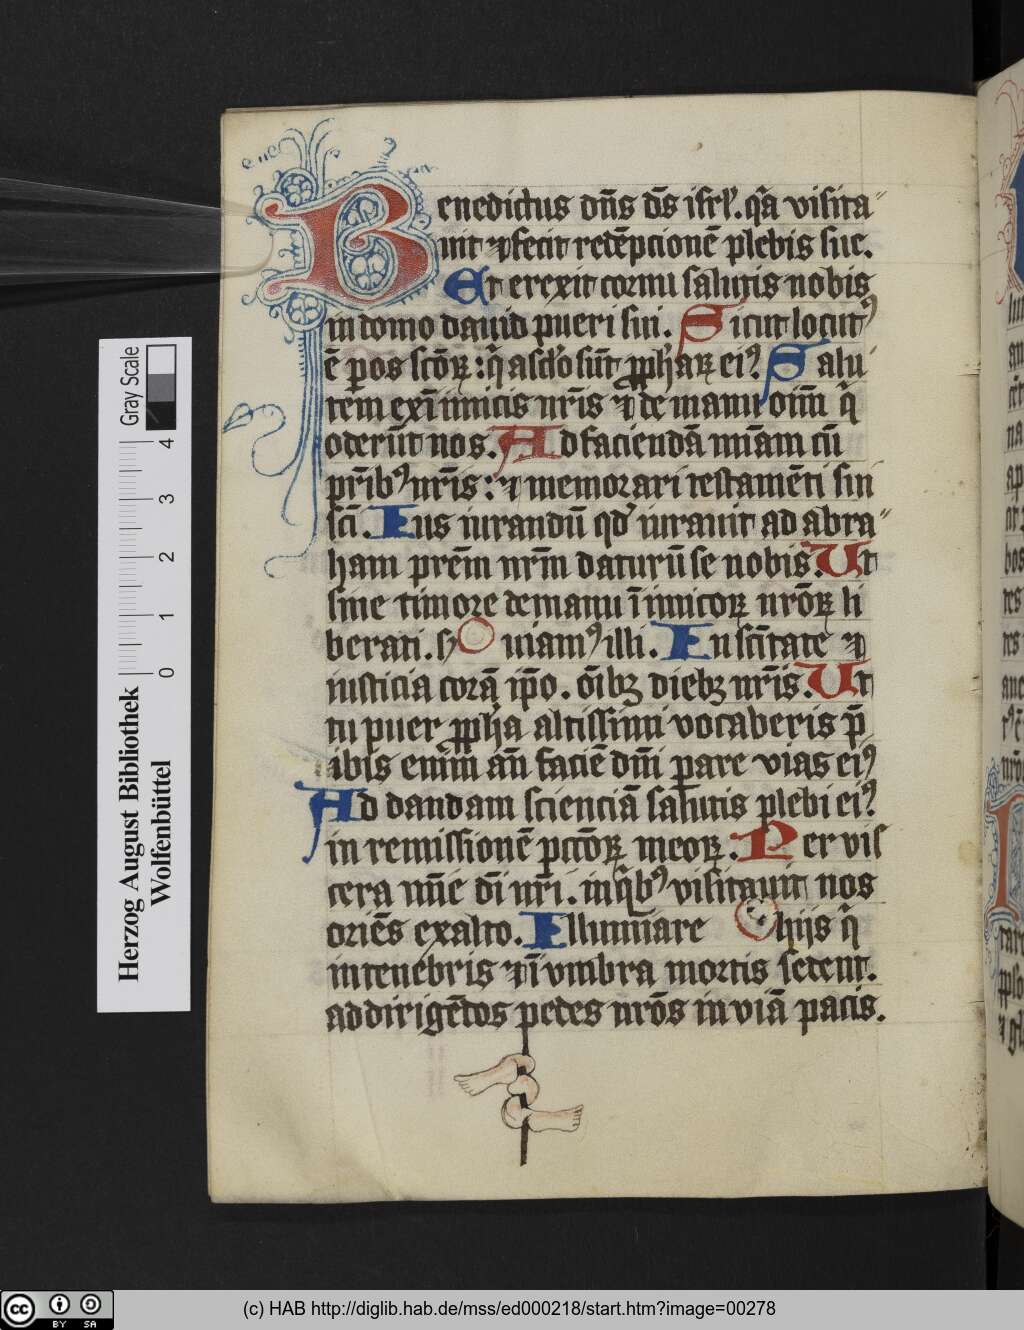 Benedictus dn̄s ds̄ isrl̓. qͣ visita
uit ⁊ fecit redēpcionē plebis sue.
Et erexit cornu salutis nobis
in domo dauid pueri sui. Sicut locutꝰ
ē per os scōꝝ: qͥ a sclo sūt ꝓph̓aꝝ eiꝰ. Salu
tem ex īimicis nr̄is ⁊ de manu oīm qͥ
oderūt nos. Ad faciendā mīam cū
pr̄ibꝰ nr̄is: ⁊ memorari testamēti sui
scī. Ius iurandū qd̓ iurauit ad abra
ham prēm nr̄m daturū se nobis. Ut
sine timore de manu īimicoꝝ nrōꝝ li
berati. s̓ uiamꝰ illi. In scītate ⁊
iusticia corā ip̄o. oībꝫ diebꝫ nr̄is. Ut
tu puer ꝓph̓a altissimi vocaberis p̄
ibis enim an̄ faciē dn̄i parare vias eiꝰ
Ad dandam scienciā salutis plebi eiꝰ.
in remissionē pctōꝝ meoꝝ. Per vis
cera mīe dī nr̄i. in qͥbꝰ visitauit nos
oriēs ex alto. Illuminare hijs qͥ
in tenebris ⁊ ī vmbra mortis sedent.
ad dirigēdos pedes nrōs in viā pacis.
Gray Scale
0 1 2 3 4
Herzog August Bibliothek
Wolfenbüttel
cc BY SA
(c) HAB http://diglib.hab.de/mss/ed000218/start.htm?image=00278